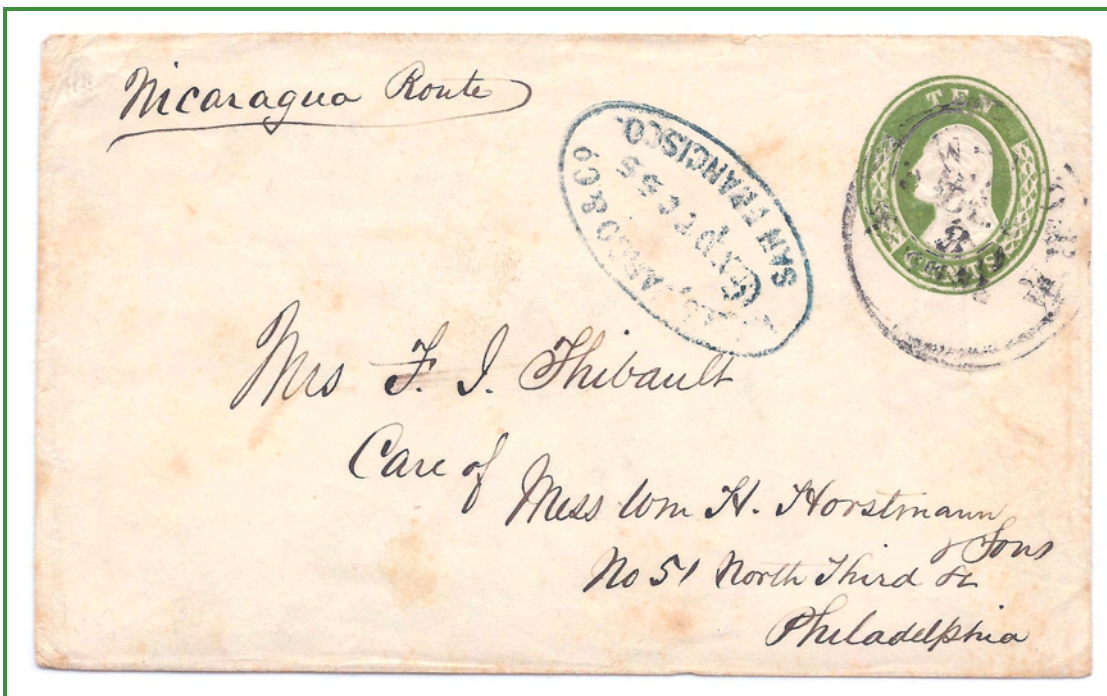 Nicaragua Route
& CO
Express
SAN FRANCISCO.
TEN
CENTS
Mrs F. J. Thibault
Care of
Mess Wm H. Horstmann
& Sons
No 51 North Third St
Philadelphia